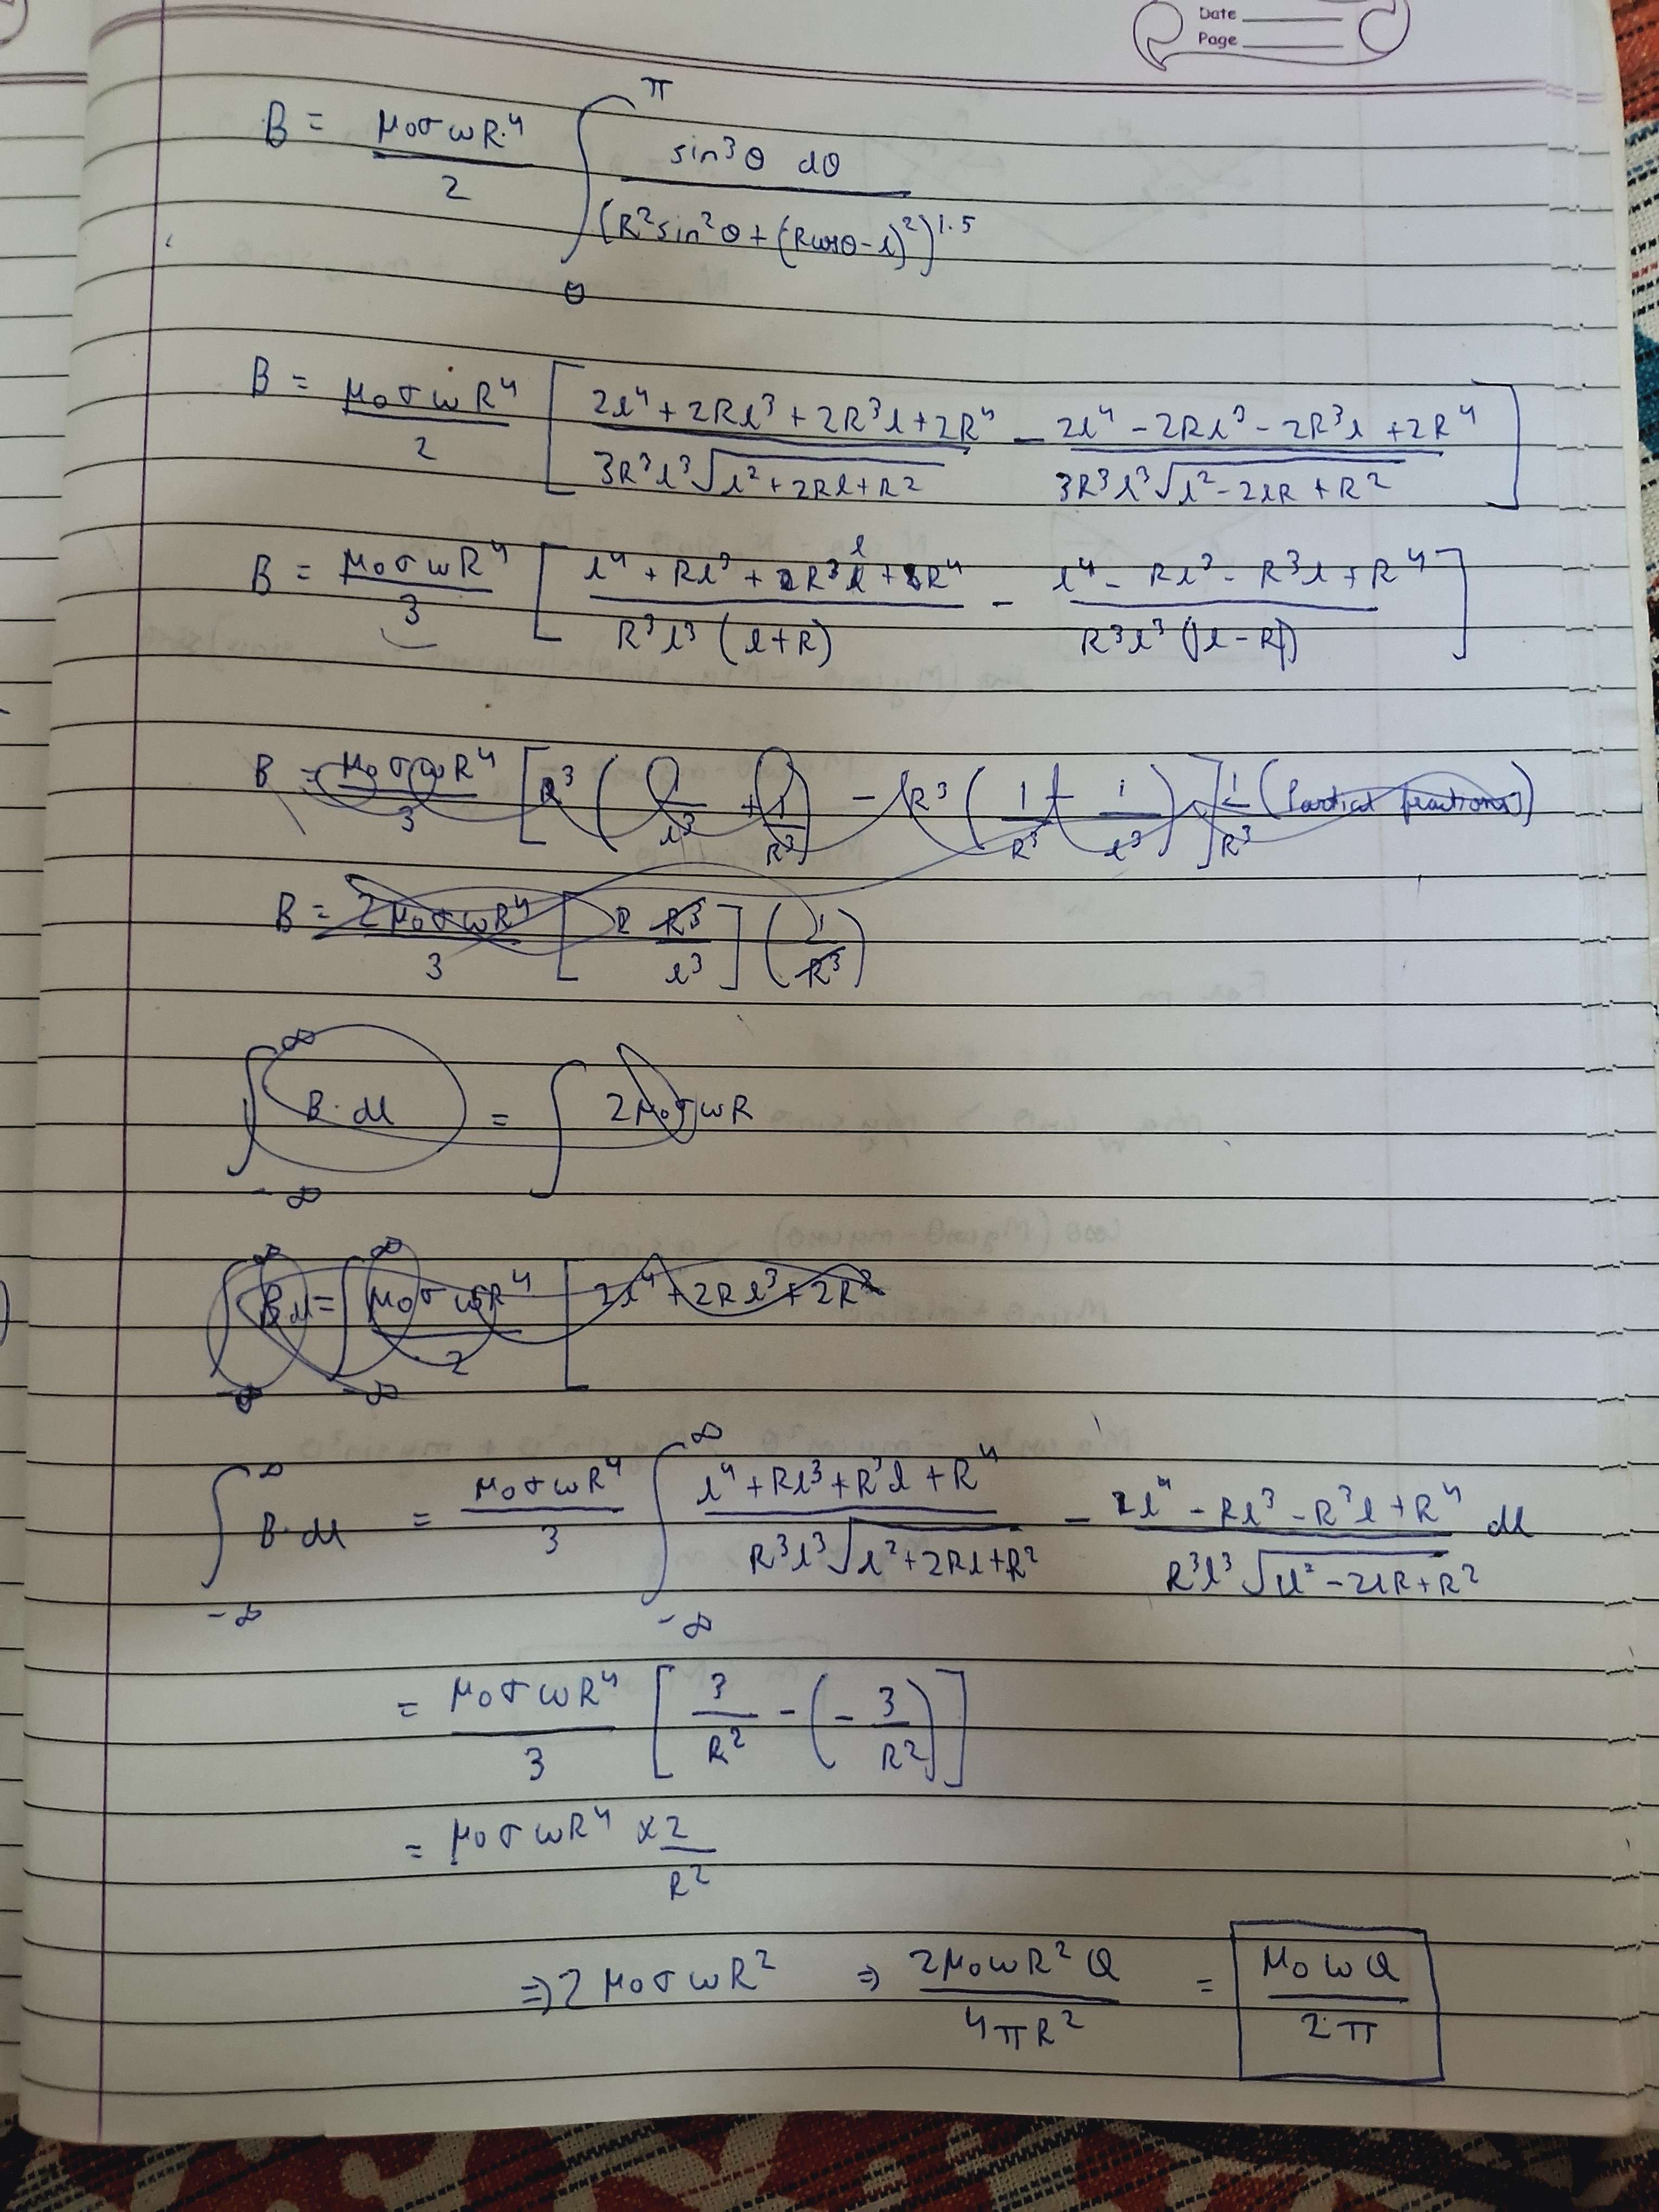 Date
Page
B = μ₀σωR⁴/2 ∫₀^π sin³θ dθ / (R²sin²θ + (Rcosθ-l)²)^1.5
B = μ₀σωR⁴/2 [ (2l⁴ + 2Rl³ + 2R³l + 2R⁴)/(3R³l³√(l²+2Rl+R²)) - (2l⁴ - 2Rl³ - 2R³l + 2R⁴)/(3R³l³√(l²-2lR+R²)) ]
B = μ₀σωR⁴/3 [ (l⁴ + Rl³ + R³l + R⁴)/(R³l³(l+R)) - (l⁴ - Rl³ - R³l + R⁴)/(R³l³(|l-R|)) ]
B = μ₀σωR⁴/3 [ R³ (1/l³ + 1/R³) - R³ (1/R³ - 1/l³) ] 1/R³ (Partial fractions)
B = 2μ₀σωR⁴/3 [ 2 R³/l³ ] (1/R³)
∫_{-∞}^{∞} B·dl = ∫ 2μ₀σωR
∫_{-∞}^{∞} B·dl = ∫_{-∞}^{∞} μ₀σωR⁴/2 [ 2l⁴ + 2Rl³ + 2R³
∫_{-∞}^{∞} B·dl = μ₀σωR⁴/3 ∫_{-∞}^{∞} (l⁴ + Rl³ + R³l + R⁴)/(R³l³√(l²+2Rl+R²)) - (l⁴ - Rl³ - R³l + R⁴)/(R³l³√(l²-2lR+R²)) dl
= μ₀σωR⁴/3 [ 3/R² - (-3/R²) ]
= μ₀σωR⁴ × 2/R²
⇒ 2μ₀σωR² ⇒ 2μ₀ωR²Q/4πR² = μ₀ωQ/2π